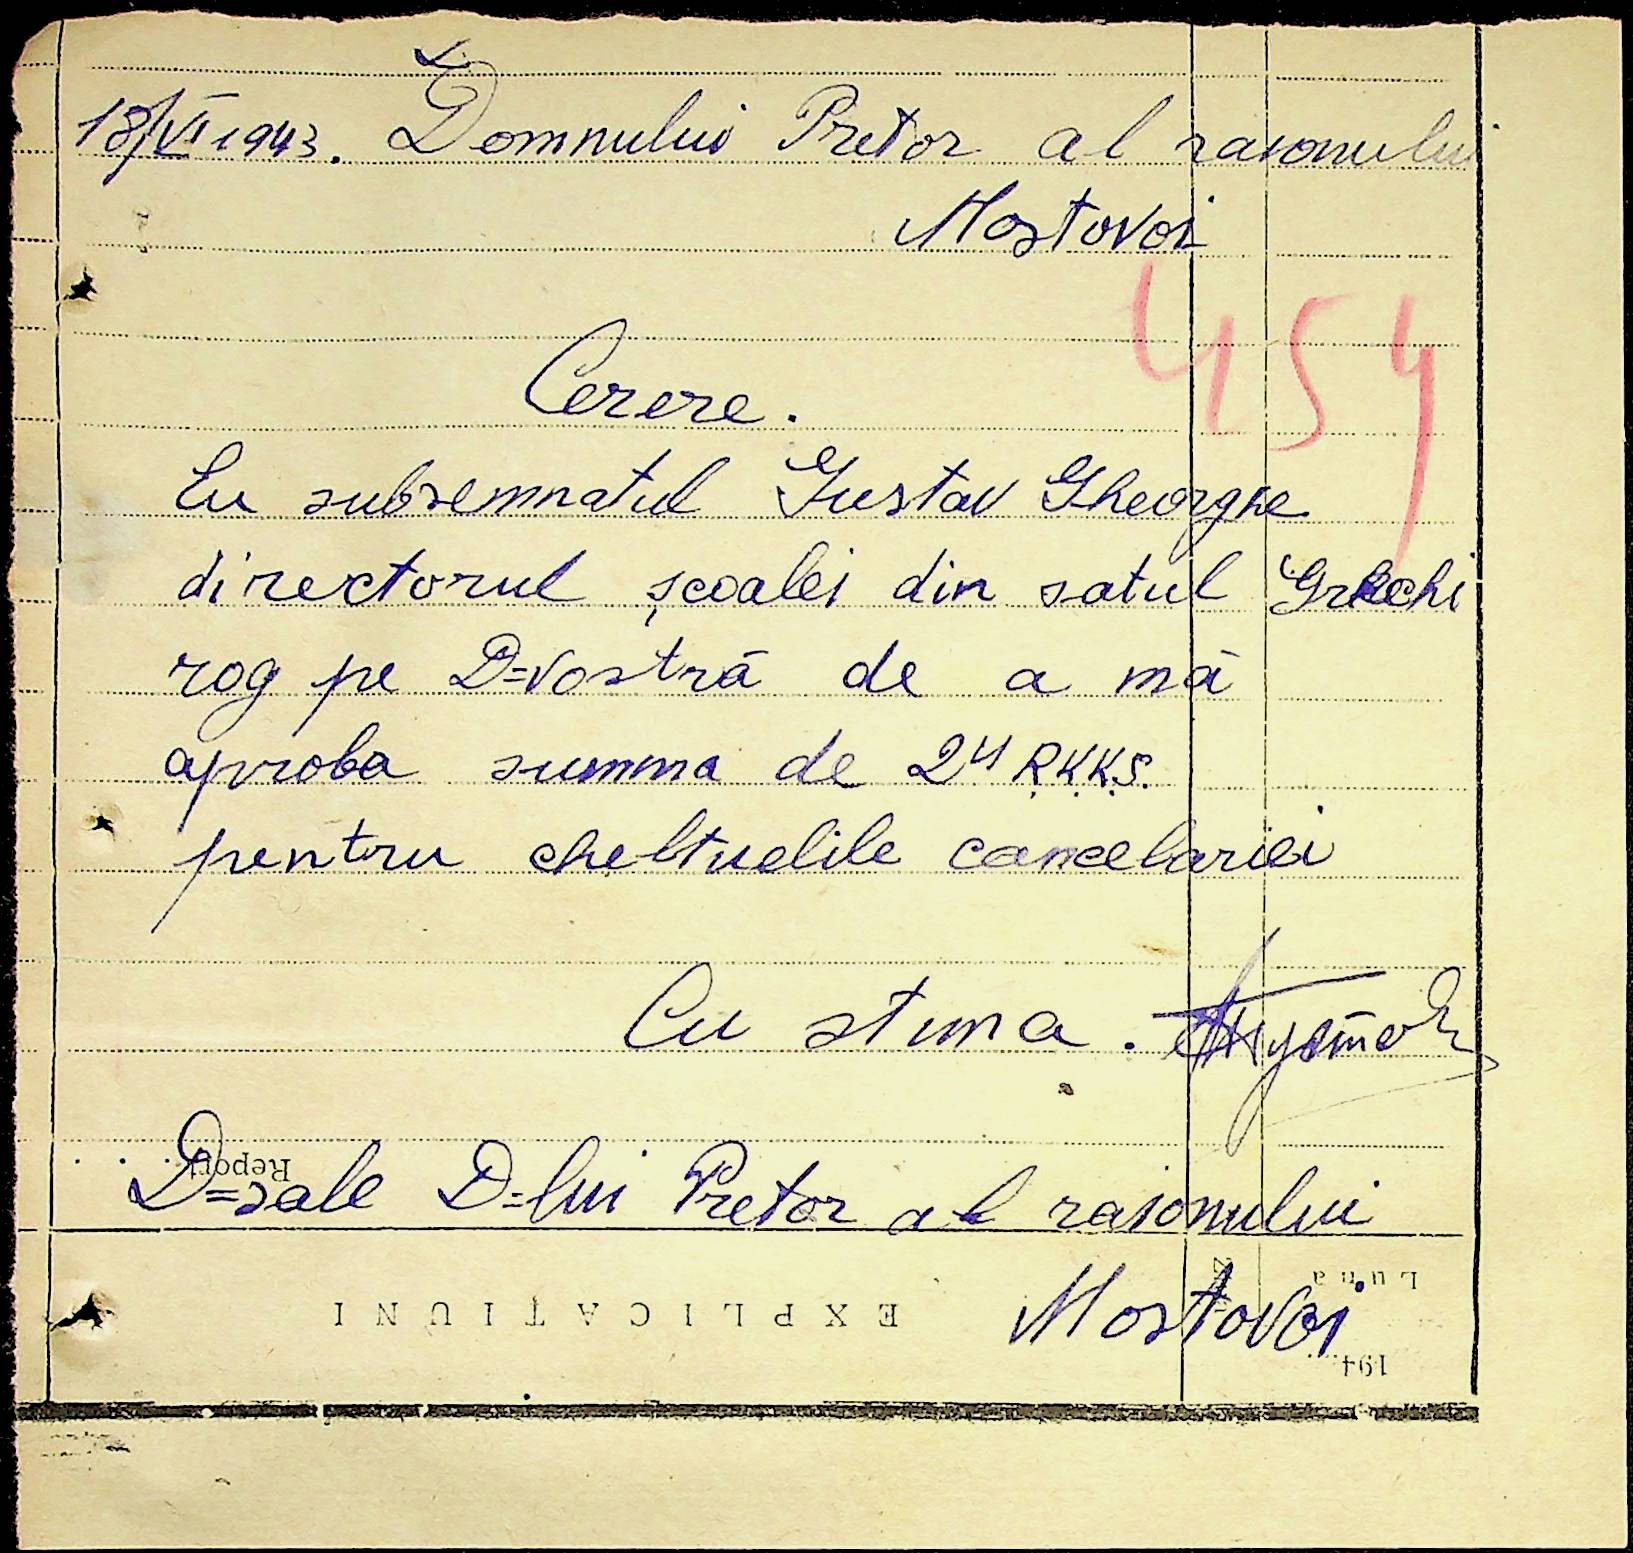 18/VI 1943. Domnului Pretor al raionului
Mostovoi
454
Cerere.
Eu subsemnatul Gustav Gheorghe
directorul școalei din satul Grecchi
rog pe D=vostră de a mă
aproba summa de 24 R.K.K.S.
pentru cheltuelile cancelariei
Cu stima.
Report
D=sale D=lui Pretor al raionului
Luna
EXPLICAȚIUNI Mostovoi
194